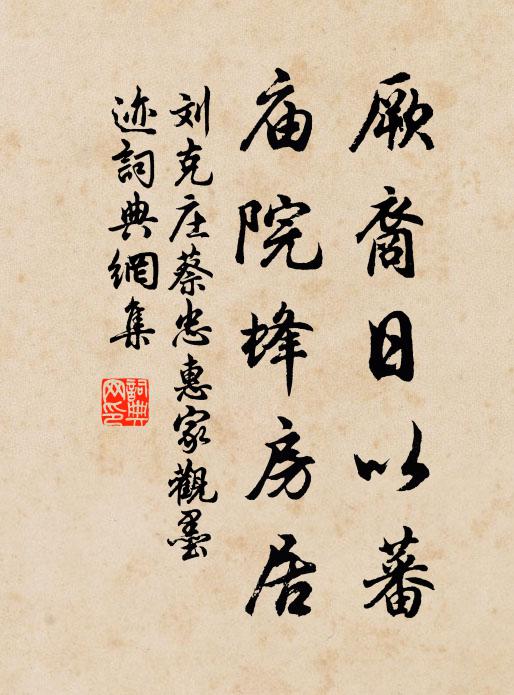 厥裔日以蕃
庙院蜂房居
刘克庄蔡忠惠家觀墨
迹詞典網集
詞典
网印